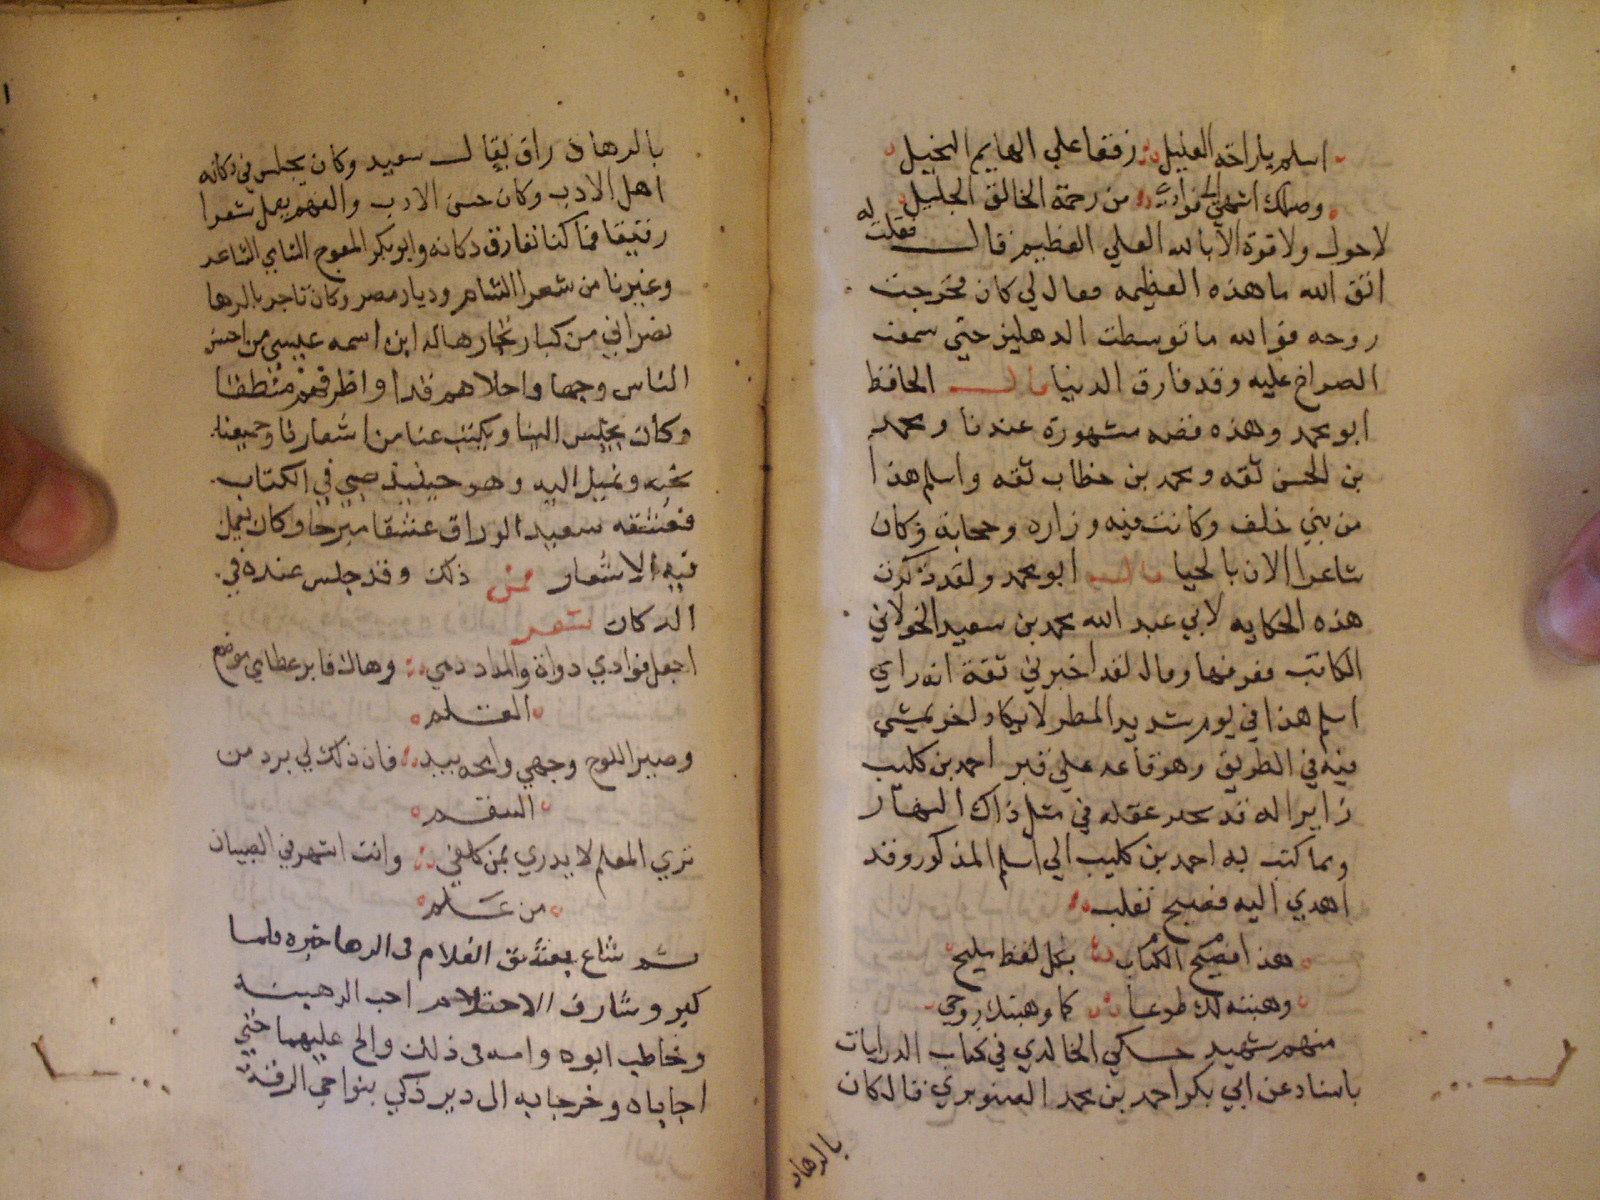 اسلم ياراحة العليل رفقا علي الهايم النحيل
وصلك اشهي الي فوادي من رحمة الخالق الجليل
لاحول ولا قوة الا بالله العلي العظيم قال فقلت له
اتق الله ما هذه العظيمه فقال لي كان فخرجت
روحه فوالله ما توسطت الدهليز حتي سمعت
الصراخ عليه وقد فارق الدنيا قال الحافظ
ابو محمد وهذه قصه مشهورة عندنا ومحمد
بن الحسن ثقه ومحمد بن خطاب ثقه واسلم هذا
من بني خلف وكانت فيه وزاره وحجابة وكان
شاعرا الان بالحيا قال ابو محمد ولقد ذكرت
هذه الحكايه لابي عبد الله محمد بن سعيد الخولاني
الكاتب فعرفها وقال لقد اخبرني ثقة انه راي
اسلم هذا في يوم شديد المطر لا يكاد احد يمشي
فيه في الطريق وهو قاعد علي قبر احمد بن كليب
زايرا له قد عقله في مثل ذاك النهار
ومما كتب به احمد بن كليب الي اسلم المذكور وقد
اهدي اليه فصيح ثعلب
هذا فصيح الكتاب بكل لفظ مليح
وهبته لك طوعا كما وهبتك روحي
منهم شهيد الخالدي في كتاب الديارات
باسناد عن ابي بكر احمد بن محمد الصنوبري قال كان
بالرها
بالرها وراق يقال سعيد وكان يجلس في دكانه
اهل الادب وكان حسن الادب والفهم يعمل شعرا
رقيقا فما كنا نفارق دكانه وابو بكر المعوج الشامي الشاعر
وغيرنا من شعرا الشام وديار مصر وكان تاجر بالرها
نصراني من كبار تجارها له ابن اسمه عيسي من احسن
الناس وجها واحلاهم قدا واظرفهم منطقا
وكان يجلس الينا ويكتب عنا من اشعارنا وجميعنا
نحبه ونميل اليه وهو حينيذ صبي في الكتاب
فعشقه سعيد الوراق عشقا مبرحا وكان يعمل
فيه الاشعار فمن ذلك وقد جلس عنده في
الدكان شعر
اجعل فوادي دواة والمداد دمي وهاك فابر عظامي موضع
القلم
وصير اللوح وجهي وامحه بيد فان ذلك لي برد من
السقم
تري المعلم لا يدري بمن كلفي وانت اشهر في الصبيان
من علم
ثم شاع بعشق الغلام في الرها خبره فلما
كبر وشارف الاحتلام احب الرهبنة
وخاطب ابوه وامه في ذلك والح عليهما حتي
اجاباه وخرجا به الي دير زكي بنواحي الرقة